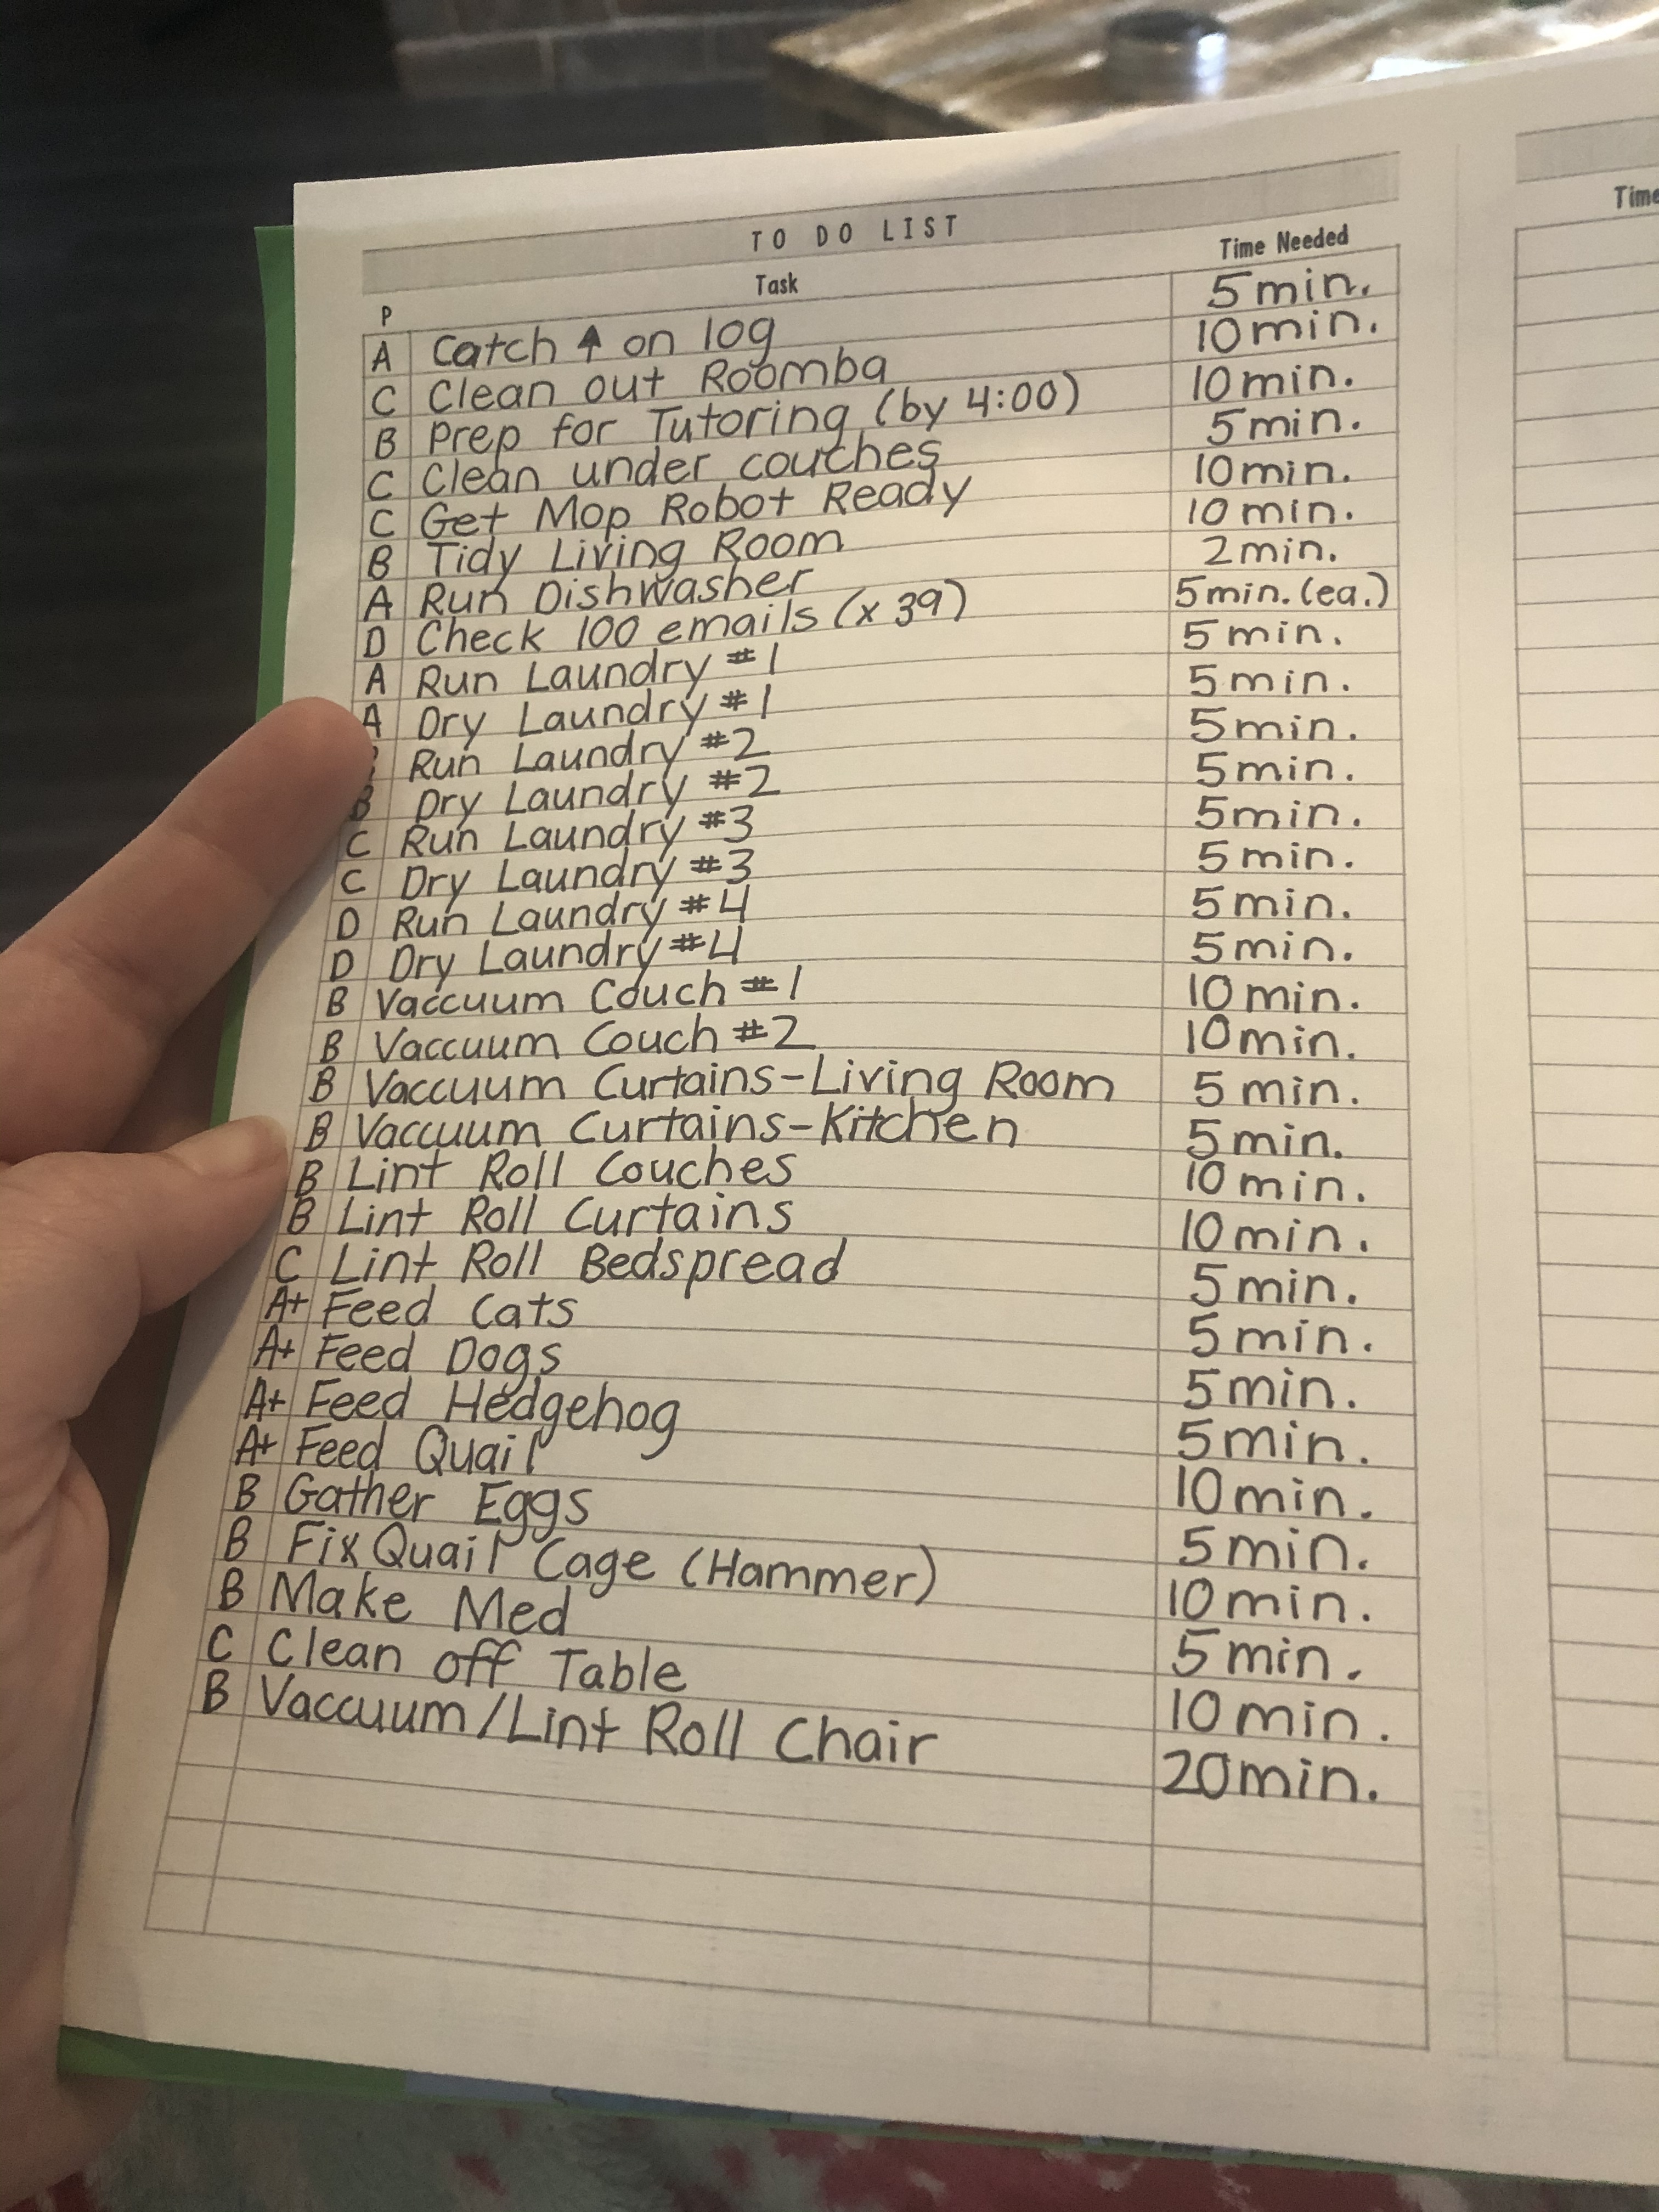 TO DO LIST
P Task Time Needed
A Catch ↑ on log 5 min.
C Clean out Roomba 10 min.
B Prep for Tutoring (by 4:00) 10 min.
C Clean under couches 5 min.
C Get Mop Robot Ready 10 min.
B Tidy Living Room 10 min.
A Run Dishwasher 2 min.
D Check 100 emails (x 39) 5 min. (ea.)
A Run Laundry #1 5 min.
A Dry Laundry #1 5 min.
Run Laundry #2 5 min.
B Dry Laundry #2 5 min.
C Run Laundry #3 5 min.
C Dry Laundry #3 5 min.
D Run Laundry #4 5 min.
D Dry Laundry #4 5 min.
B Vaccuum Couch #1 10 min.
B Vaccuum Couch #2 10 min.
B Vaccuum Curtains-Living Room 5 min.
B Vaccuum Curtains-Kitchen 5 min.
B Lint Roll Couches 10 min.
B Lint Roll Curtains 10 min.
C Lint Roll Bedspread 5 min.
A+ Feed Cats 5 min.
A+ Feed Dogs 5 min.
A+ Feed Hedgehog 5 min.
A+ Feed Quail 10 min.
B Gather Eggs 5 min.
B Fix Quail Cage (Hammer) 10 min.
B Make Med 5 min.
C Clean off Table 10 min.
B Vaccuum/Lint Roll Chair 20 min.